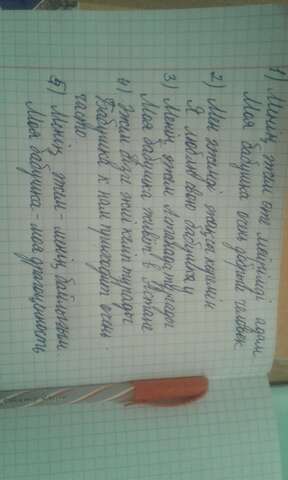 1) Менің әжем өте мейірімді адам
Моя бабушка очень добрый человек.
2) Мен әжемді жақсы көремін
Я люблю свою бабушку
3) Менің әжем Астанада тұрады
Моя бабушка живёт в Астане
4) Әжем бізге жиі келіп тұрады
Бабушка к нам приходит очень
часто
5) Менің әжем - менің байлығым
Моя бабушка - моя драгоценность.